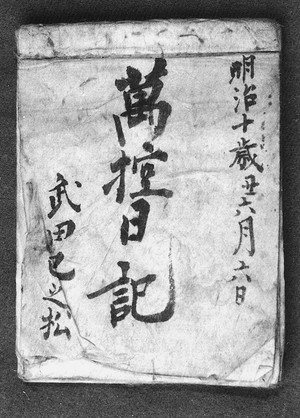 明治十歳丑六月六日
萬控日記
武田巳之松